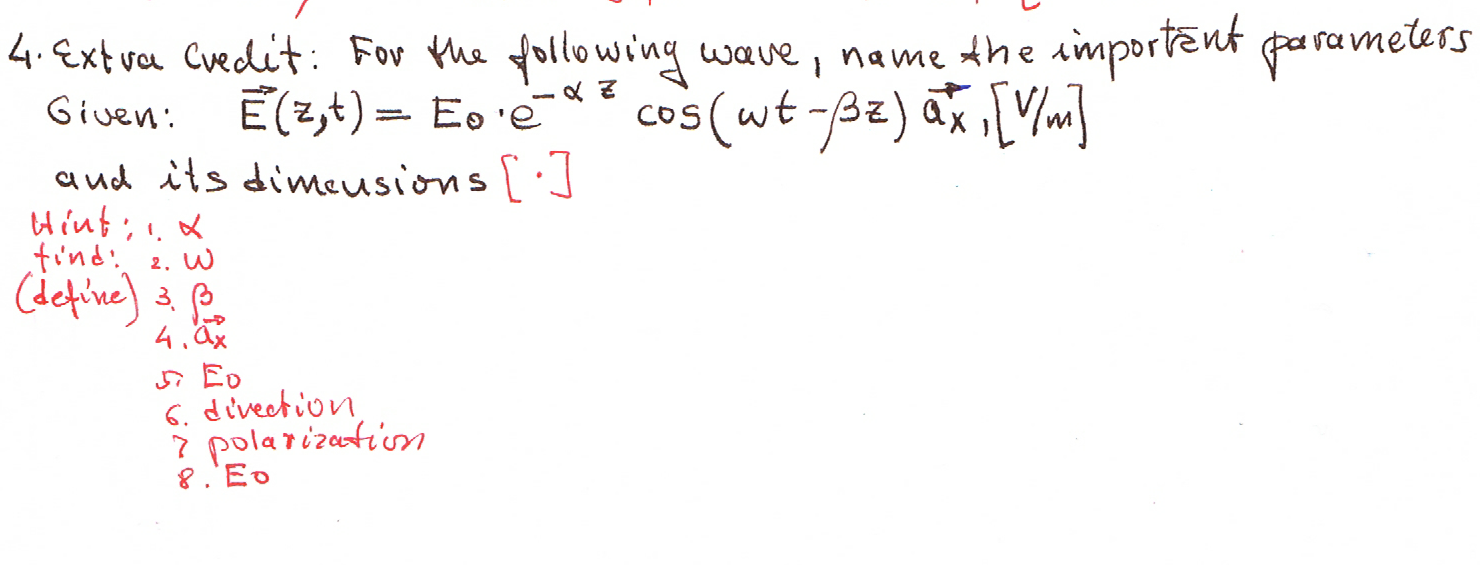 4. Extra Credit: For the following wave, name the important parameters
Given: E⃗(z,t) = E₀·e^(-αz) cos(ωt - βz) a⃗x, [V/m]
and its dimensions [·]
Hint: 1. α
find: 2. ω
(define) 3. β
4. a⃗x
5. E₀
6. direction
7 polarization
8. E₀